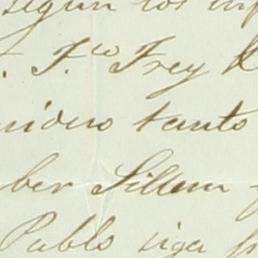 segun los inf
F.co Frey
nidero tanto
ber Sillem
Pablo siga